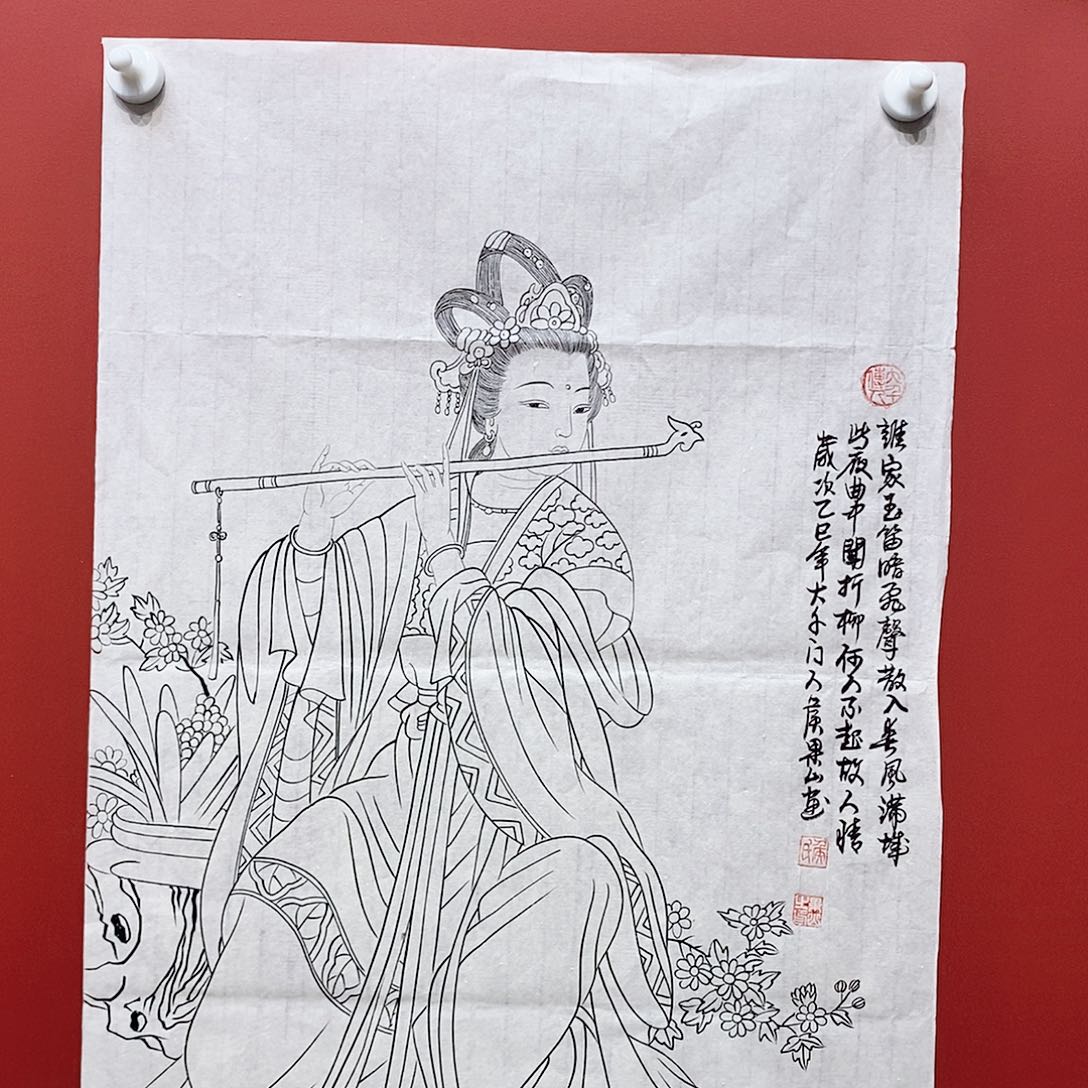 誰家玉笛暗飛聲散入春風滿城
此夜曲中聞折柳何人不起故人情
歲次乙巳年大千门人侯果山畫